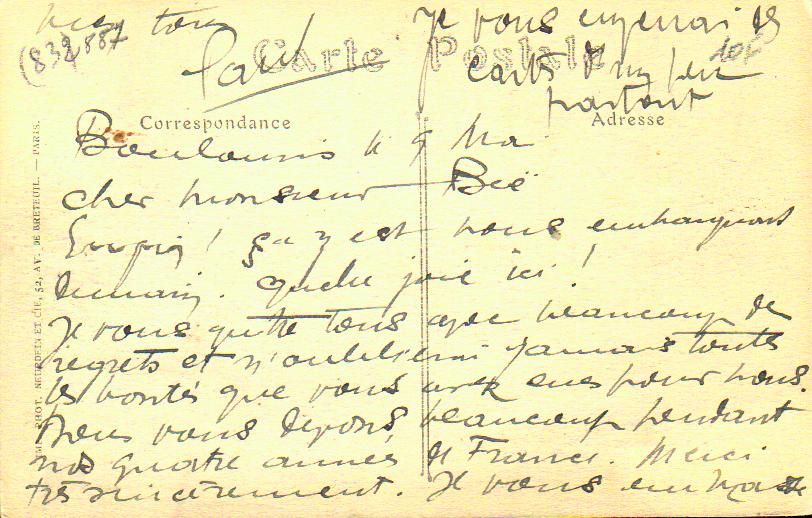 Boulouris le 9 Mai
cher monsieur Bec
Enfin! ça y est nous embarquons
demain. Quelle joie ici!
Je vous quitte tous avec beaucoup de
regrets et n'oublierai jamais toutes
les bontés que vous avez eues pour nous.
Nous vous devons beaucoup pendant
nos quatre années de France. Merci
très sincèrement. Je vous embrasse
bien tous
Je vous enverrai des
cartes d'un peu
partout
(832) 887
Carte Postale
Correspondance
Adresse
PHOT. NEURDEIN ET CIE, 52, AV. DE BRETEUIL. — PARIS.